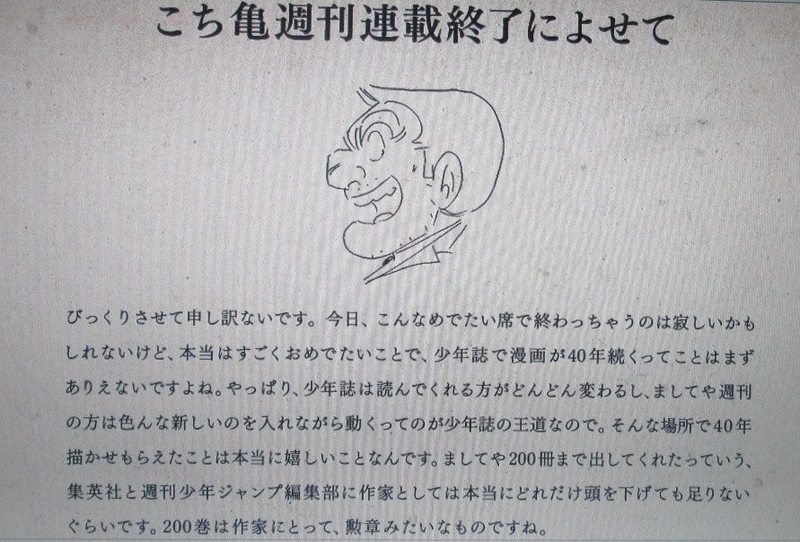 こち亀週刊連載終了によせて
びっくりさせて申し訳ないです。今日、こんなめでたい席で終わっちゃうのは寂しいかも
しれないけど、本当はすごくおめでたいことで、少年誌で漫画が40年続くってことはまず
ありえないですよね。やっぱり、少年誌は読んでくれる方がどんどん変わるし、ましてや週刊
の方は色んな新しいのを入れながら動くってのが少年誌の王道なので。そんな場所で40年
描かせもらえたことは本当に嬉しいことなんです。ましてや200冊まで出してくれたっていう、
集英社と週刊少年ジャンプ編集部に作家としては本当にどれだけ頭を下げても足りない
ぐらいです。200巻は作家にとって、勲章みたいなものですね。